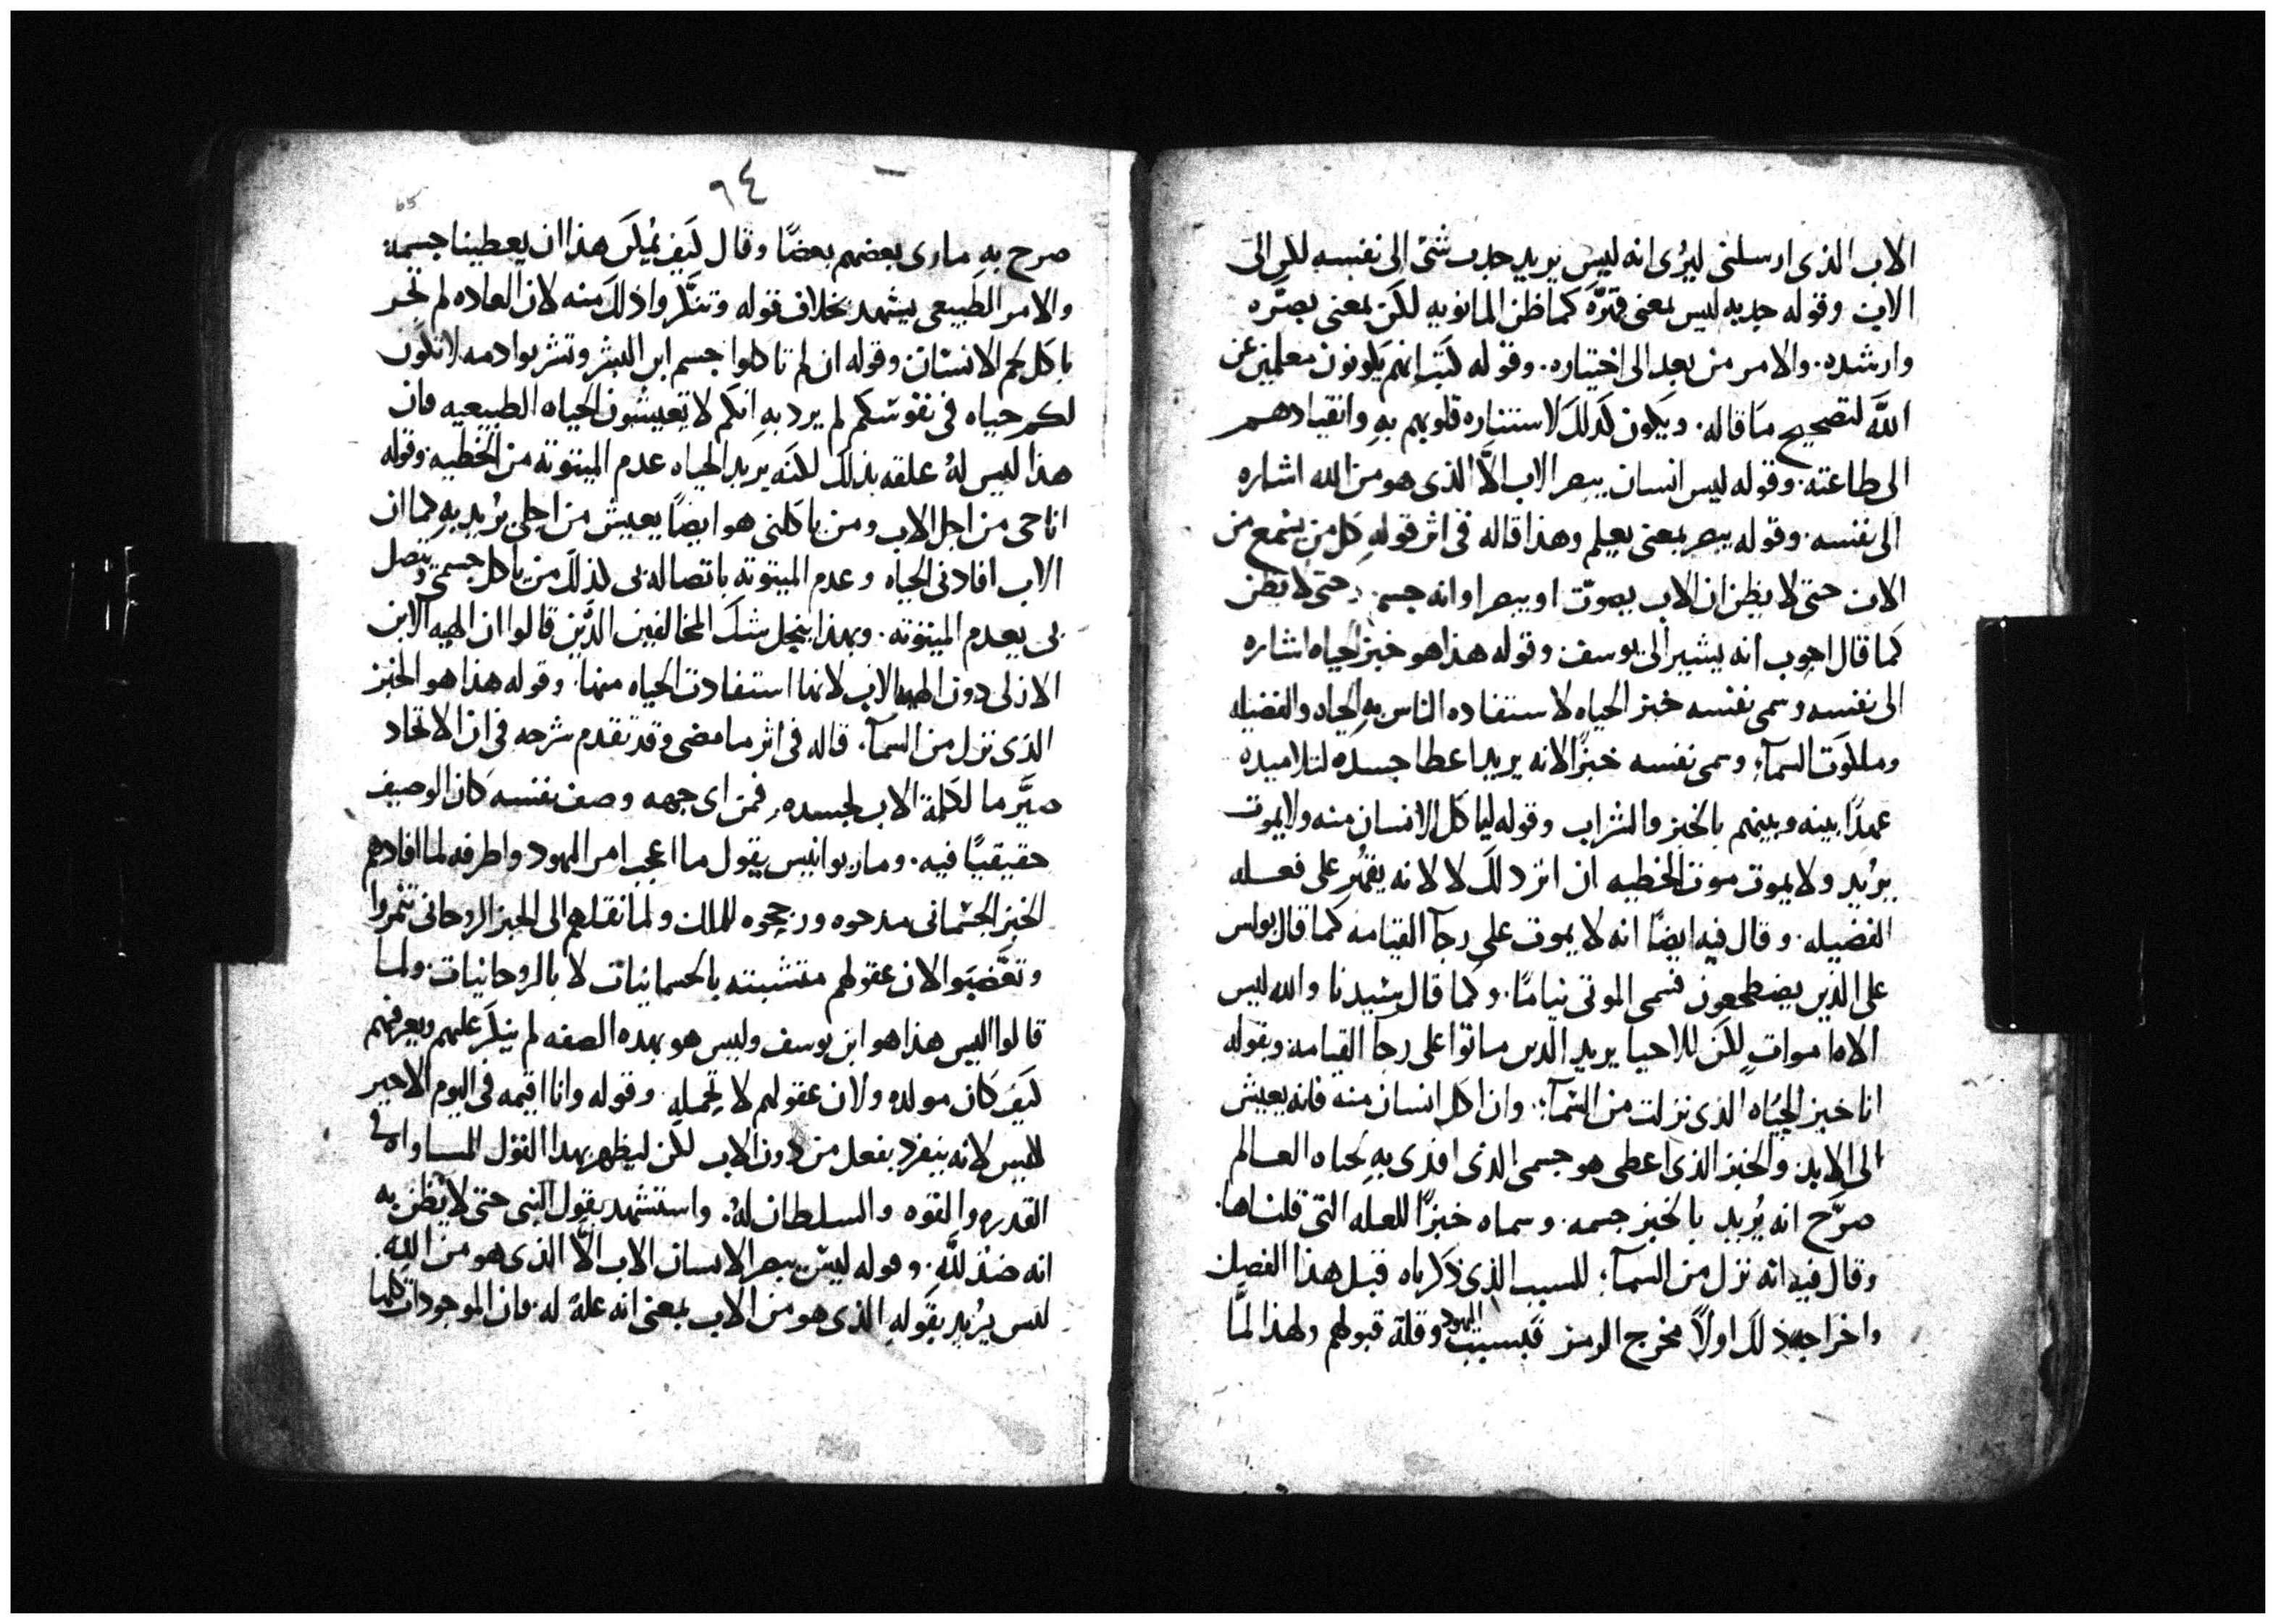 الاب الذى ارسلنى ليُرى انه ليس يريد جذب شئ الى نفسه لكن الى
الاب وقوله جذبه ليس بمعنى قسَّره كما ظن المانويه لكن بمعنى بصَّره
وارشده. والامر من بعد الى اختياره. وقوله كتب انهم يكونون معلمين عن
اللَّه لتصحيح ما قاله. ويكون كذلك لاستناره قلوبهم بهِ وانقيادهم
الى طاعته. وقوله ليس انسان يبصر الاب الَّا الذى هو من الله اشاره
الى نفسه. وقوله يبصر بمعنى يعلم وهذا قاله فى اثر قولهِ كل من يسمع من
الاب حتى لا يظن ان الاب يصوّت او يبصر او انه جسم. حتى لا يظن
كما قال انه يشير الى يوسف. وقوله هذا هو خبز الحياه اشاره
الى نفسه وسمى نفسه خبز الحياه لاستفاده الناس بهِ الحياه والفضيله
وملكوت السمآء وسمى نفسه خبزًا لانه يريد اعطا جسده لتلاميذه
عهدًا بينه وبينهم بالخبز والشراب وقوله لياكل الانسان منه ولا يموت
يُريد ولا يموت موت الخطيه ان اثر ذلك لا لانه يقهر على فعله
الفضيله. وقال فيه ايضًا انه لا يموت على رجآ القيامه كما قال بولس
على الذين يضطجعون فسمى الموتى نيامًا. وكما قال سيدنا والله ليس
الاه اموات لكن للاحيا يريد الذين ماتوا على رجآ القيامه وبقوله
انا خبز الحياه الذى نزلت من السمآء. وان اكل انسان منه فانه يعيش
الى الابد. والخبز الذى اعطى هو جسمى الذى افدى بهِ لحياه العالم
صرَّح انه يُريد بالخبز جسمه. وسماه خبزًا للعله التى قلناها.
وقال فيه انه نزل من السمآء للسبب الذى ذكرناه قبل هذا الفصل
واخراجه ذلك اولًا مخرج الرمز فبسبب اليهود وقلة قبولهم ولهذا لمَّا
٦٤
65
صرح بهِ مارى بعضهم بعضًا وقال كيف يُمكن هذا ان يعطينا جسمه
والامر الطبيعى يشهد بخلاف قوله وتنكَّروا ذلك منه لان العاده لم تجر
باكل لحم الانسان وقوله ان لم تاكلوا جسم ابن البشر وتشربوا دمه لا تكون
لكم حياه فى نفوسكم لم يرد بهِ انكم لا تعيشون الحياه الطبيعيه فان
هذا ليس لهُ علقه بذلك لكنه يريد الحياه عدم الميتوته من الخطيه وقوله
انا حى من اجل الاب ومن ياكلنى هو ايضًا يعيش من اجلى يُريد بهِ كما ان
الاب افادنى الحياه وعدم الميتوته باتصاله بى لذلك من ياكل جسمى ويتصل
بى يعدم الميتوته. وبهذا ينحل شك المخالفين الذين قالوا ان الهيه الابن
الازلى دون الهيه الاب لانها استفادت الحياه منها. وقوله هذا هو الخبز
الذى نزل من السمآء. قاله فى اثر ما مضى وقد تقدم شرحه فى ان الاتحاد
صيَّر ما لكلمة الاب لجسده. فمن اى جهه وصف نفسه كان الوصف
حقيقيًا فيه. ومار يوانيس يقول ما اعجب امر اليهود واطرفه لما افادهم
الخبز الجسمانى مدحوه ورجحوه للملك ولما نقلهم الى الخبز الروحانى تنمروا
وتغضبَوا لان عقولهم متشبثه بالجسمانيات لا بالروحانيات. ولما
قالوا اليس هذا هو ابن يوسف وليس هو بهذه الصفه لم ينكر عليهم ويعرفهم
كيف كان مولده ولان عقولهم لا تحمله. وقوله وانا اقيمه فى اليوم الاخير
ليس لانه ينفرد بفعل من دون الاب لكن ليظهر بهذا القول المساواه فى
القدره والقوه والسلطان لهُ. واستشهد بقول النبى حتى لا يظن به
انه ضد للَّهِ. وقوله ليس يبصر الانسان الاب الَّا الذى هو من اللهِ.
ليس يُريد بقولهِ الذى هو من الاب بمعنى انه علةً له. فان الموجودات كلها